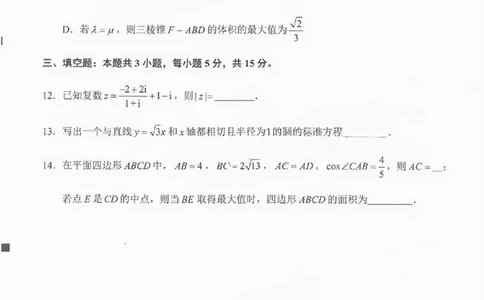 D. 若λ=μ，则三棱锥F-ABD的体积的最大值为 √2/3
三、填空题：本题共3小题，每小题5分，共15分。
12. 已知复数z= (-2+2i)/(1+i) +1-i，则|z|=________．
13. 写出一个与直线y=√3x和x轴都相切且半径为1的圆的标准方程________．
14. 在平面四边形ABCD中，AB=4，BC=2√13，AC=AD，cos∠CAB= 4/5，则AC=__；
若点E是CD的中点，则当BE取得最大值时，四边形ABCD的面积为________．